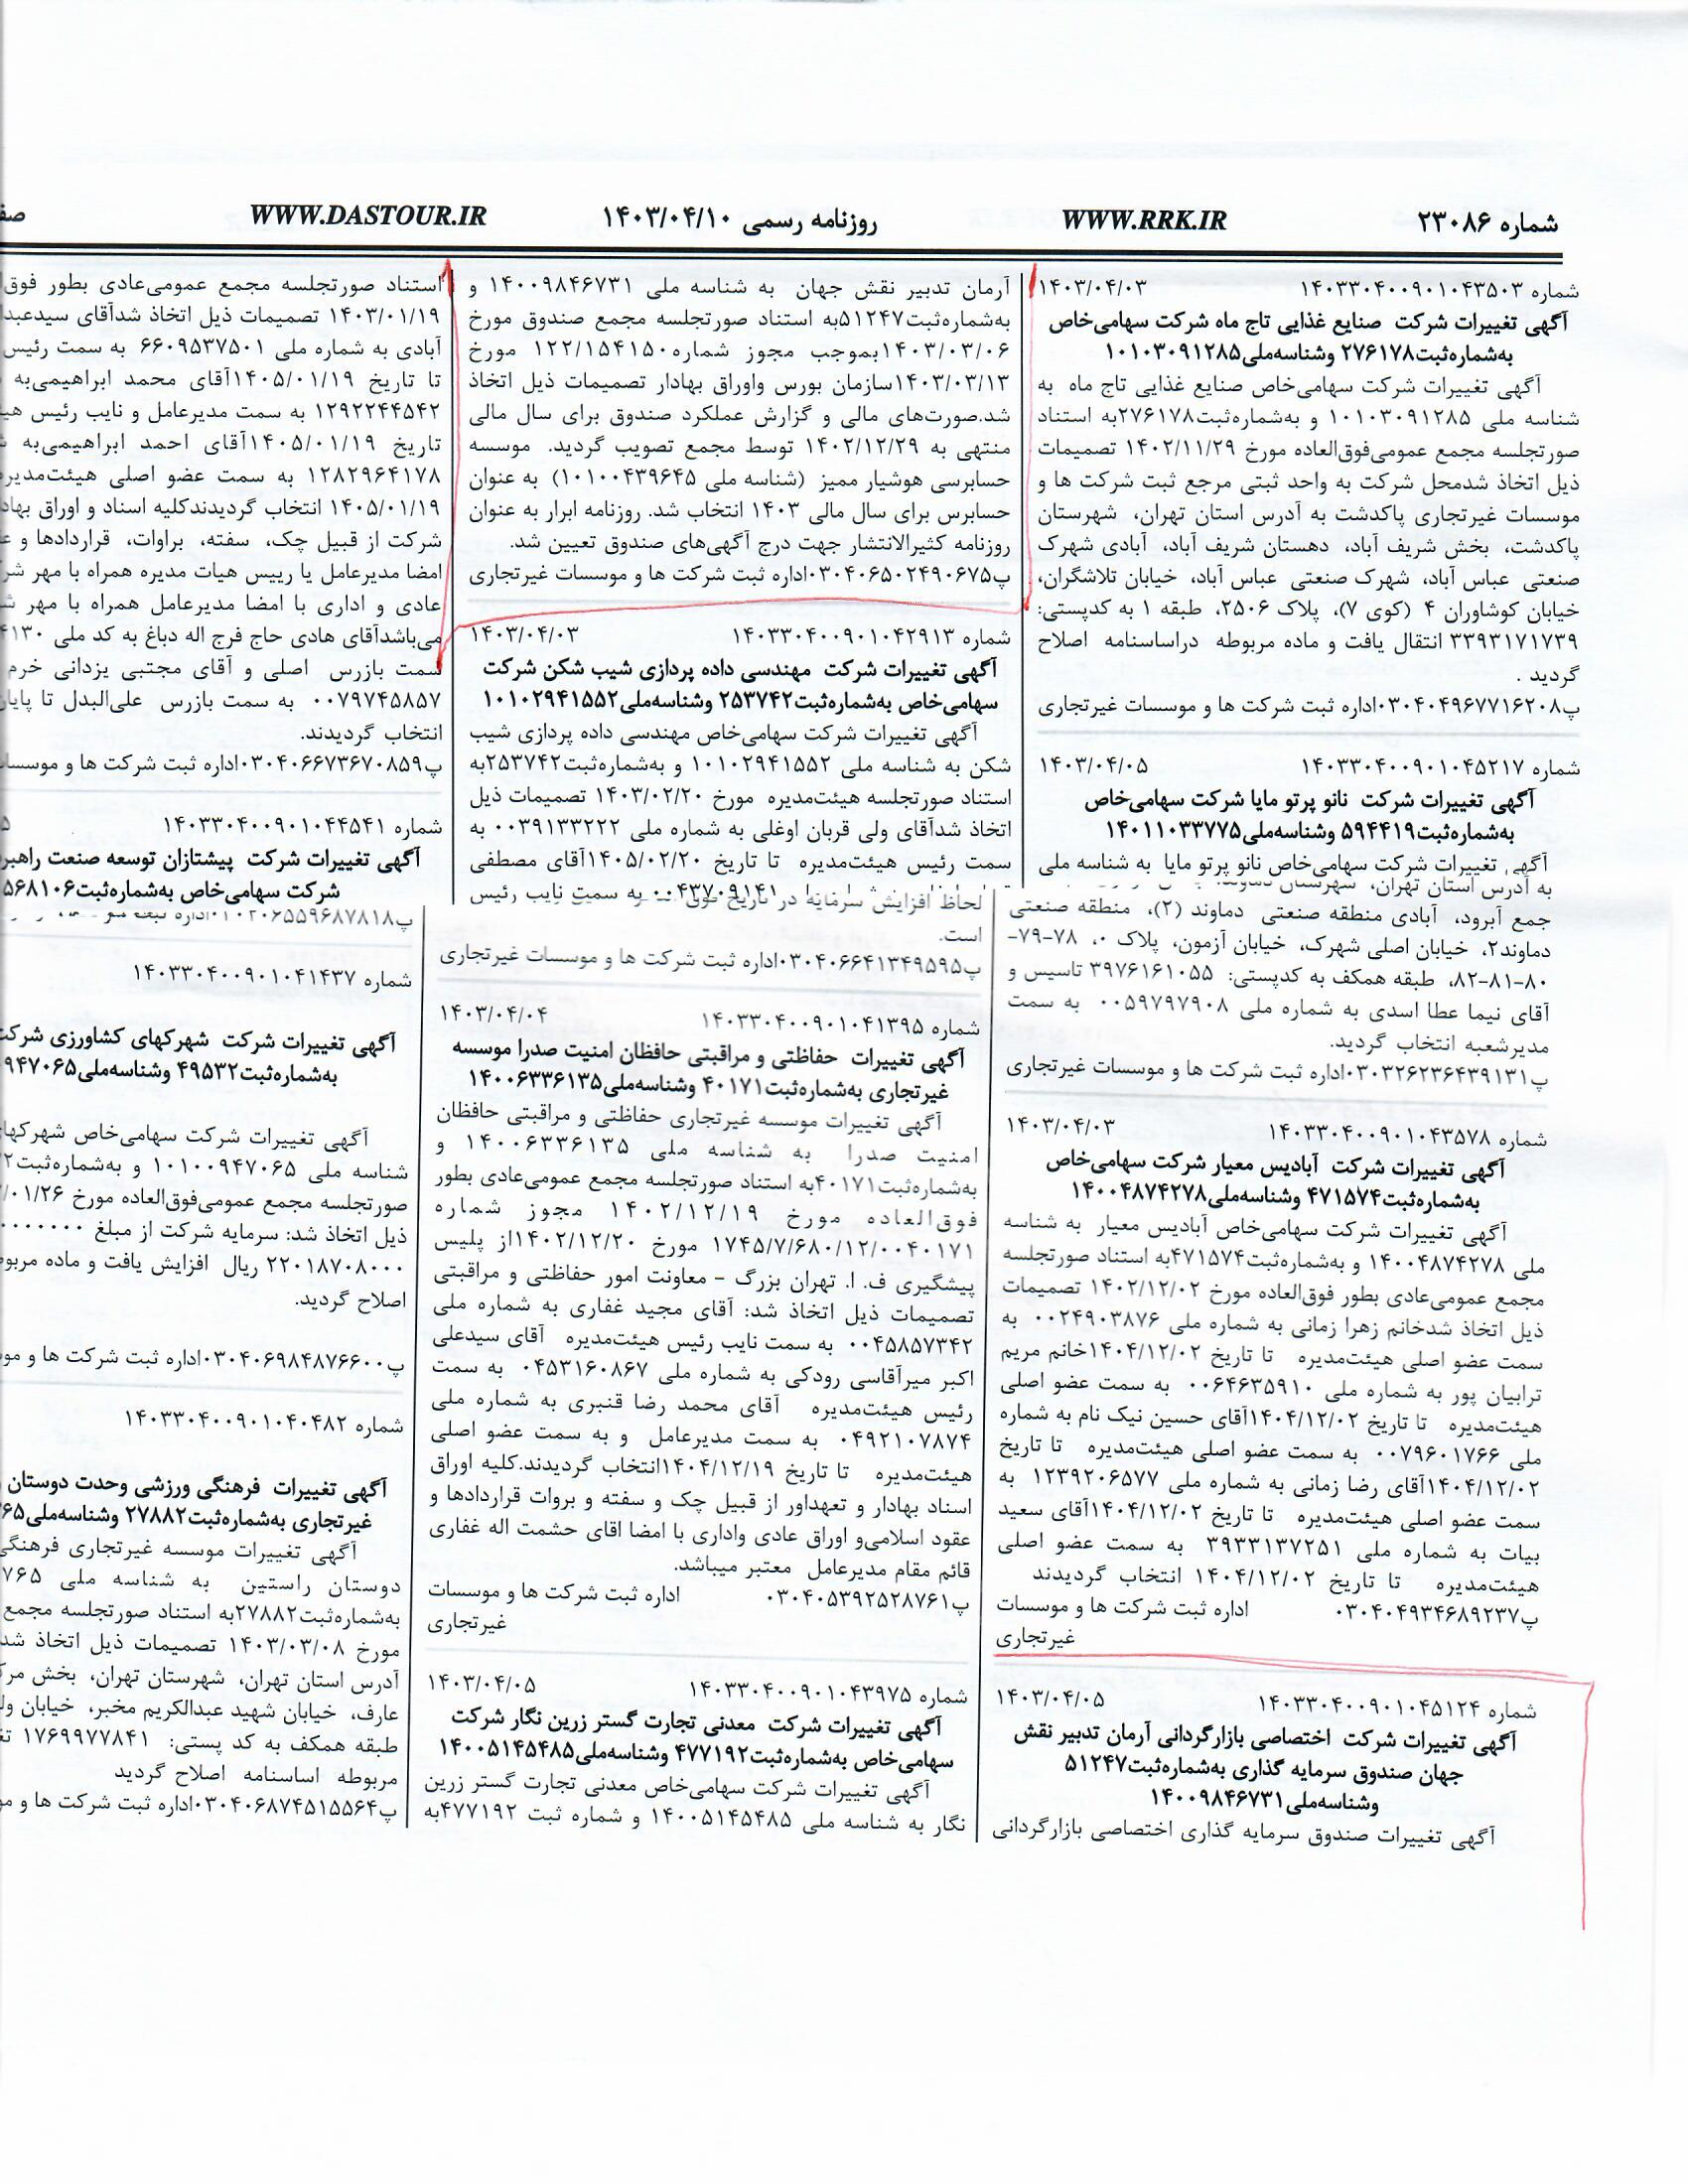 شماره ۲۳۰۸۶
WWW.RRK.IR
روزنامه رسمی ۱۴۰۳/۰۴/۱۰
WWW.DASTOUR.IR
شماره ۱۴۰۳۳۰۴۰۰۹۰۱۰۴۳۵۰۳ ۱۴۰۳/۰۴/۰۳
آگهی تغییرات شرکت صنایع غذایی تاج ماه شرکت سهامی‌خاص
به‌شماره‌ثبت۲۷۶۱۷۸ وشناسه‌ملی۱۰۱۰۳۰۹۱۲۸۵
آگهی تغییرات شرکت سهامی‌خاص صنایع غذایی تاج ماه به
شناسه ملی ۱۰۱۰۳۰۹۱۲۸۵ و به‌شماره‌ثبت۲۷۶۱۷۸به استناد
صورتجلسه مجمع عمومی‌فوق‌العاده مورخ ۱۴۰۲/۱۱/۲۹ تصمیمات
ذیل اتخاذ شدمحل شرکت به واحد ثبتی مرجع ثبت شرکت ها و
موسسات غیرتجاری پاکدشت به آدرس استان تهران، شهرستان
پاکدشت، بخش شریف آباد، دهستان شریف آباد، آبادی شهرک
صنعتی عباس آباد، شهرک صنعتی عباس آباد، خیابان تلاشگران،
خیابان کوشاوران ۴ (کوی ۷)، پلاک ۲۵۰۶، طبقه ۱ به کدپستی:
۳۳۹۳۱۷۱۷۳۹ انتقال یافت و ماده مربوطه دراساسنامه اصلاح
گردید .
پ۰۳۰۴۰۴۹۶۷۷۱۶۲۰۸اداره ثبت شرکت ها و موسسات غیرتجاری
شماره ۱۴۰۳۳۰۴۰۰۹۰۱۰۴۵۲۱۷ ۱۴۰۳/۰۴/۰۵
آگهی تغییرات شرکت نانو پرتو مایا شرکت سهامی‌خاص
به‌شماره‌ثبت۵۹۴۴۱۹ وشناسه‌ملی۱۴۰۱۱۰۳۳۷۷۵
آگهی تغییرات شرکت سهامی‌خاص نانو پرتو مایا به شناسه ملی
به آدرس استان تهران، شهرستان دماوند،
جمع آبرود، آبادی منطقه صنعتی دماوند (۲)، منطقه صنعتی
دماوند۲، خیابان اصلی شهرک، خیابان آزمون، پلاک ۰، ۷۸-۷۹-
۸۰-۸۱-۸۲، طبقه همکف به کدپستی: ۳۹۷۶۱۶۱۰۵۵ تاسیس و
آقای نیما عطا اسدی به شماره ملی ۰۰۵۹۷۹۷۹۰۸ به سمت
مدیرشعبه انتخاب گردید.
پ۰۳۰۳۲۶۲۳۶۴۳۹۱۳۱اداره ثبت شرکت ها و موسسات غیرتجاری
شماره ۱۴۰۳۳۰۴۰۰۹۰۱۰۴۳۵۷۸ ۱۴۰۳/۰۴/۰۳
آگهی تغییرات شرکت آبادیس معیار شرکت سهامی‌خاص
به‌شماره‌ثبت۴۷۱۵۷۴ وشناسه‌ملی۱۴۰۰۴۸۷۴۲۷۸
آگهی تغییرات شرکت سهامی‌خاص آبادیس معیار به شناسه
ملی ۱۴۰۰۴۸۷۴۲۷۸ و به‌شماره‌ثبت۴۷۱۵۷۴به استناد صورتجلسه
مجمع عمومی‌عادی بطور فوق‌العاده مورخ ۱۴۰۲/۱۲/۰۲ تصمیمات
ذیل اتخاذ شدخانم زهرا زمانی به شماره ملی ۰۰۲۴۹۰۳۸۷۶ به
سمت عضو اصلی هیئت‌مدیره تا تاریخ ۱۴۰۴/۱۲/۰۲خانم مریم
ترابیان پور به شماره ملی ۰۰۶۴۶۳۵۹۱۰ به سمت عضو اصلی
هیئت‌مدیره تا تاریخ ۱۴۰۴/۱۲/۰۲آقای حسین نیک نام به شماره
ملی ۰۰۷۹۶۰۱۷۶۶ به سمت عضو اصلی هیئت‌مدیره تا تاریخ
۱۴۰۴/۱۲/۰۲آقای رضا زمانی به شماره ملی ۱۲۳۹۲۰۶۵۷۷ به
سمت عضو اصلی هیئت‌مدیره تا تاریخ ۱۴۰۴/۱۲/۰۲آقای سعید
بیات به شماره ملی ۳۹۳۳۱۳۷۲۵۱ به سمت عضو اصلی
هیئت‌مدیره تا تاریخ ۱۴۰۴/۱۲/۰۲ انتخاب گردیدند
پ۰۳۰۴۰۴۹۳۴۶۸۹۲۳۷ اداره ثبت شرکت ها و موسسات
غیرتجاری
شماره ۱۴۰۳۳۰۴۰۰۹۰۱۰۴۵۱۲۴ ۱۴۰۳/۰۴/۰۵
آگهی تغییرات شرکت اختصاصی بازارگردانی آرمان تدبیر نقش
جهان صندوق سرمایه گذاری به‌شماره‌ثبت۵۱۲۴۷
وشناسه‌ملی۱۴۰۰۹۸۴۶۷۳۱
آگهی تغییرات صندوق سرمایه گذاری اختصاصی بازارگردانی
آرمان تدبیر نقش جهان به شناسه ملی ۱۴۰۰۹۸۴۶۷۳۱ و
به‌شماره‌ثبت۵۱۲۴۷به استناد صورتجلسه مجمع صندوق مورخ
۱۴۰۳/۰۳/۰۶بموجب مجوز شماره۱۲۲/۱۵۴۱۵۰ مورخ
۱۴۰۳/۰۳/۱۳سازمان بورس واوراق بهادار تصمیمات ذیل اتخاذ
شد.صورت‌های مالی و گزارش عملکرد صندوق برای سال مالی
منتهی به ۱۴۰۲/۱۲/۲۹ توسط مجمع تصویب گردید. موسسه
حسابرسی هوشیار ممیز (شناسه ملی ۱۰۱۰۰۴۳۹۶۴۵) به عنوان
حسابرس برای سال مالی ۱۴۰۳ انتخاب شد. روزنامه ابرار به عنوان
روزنامه کثیرالانتشار جهت درج آگهی‌های صندوق تعیین شد.
پ۰۳۰۴۰۶۵۰۲۴۹۰۶۷۵اداره ثبت شرکت ها و موسسات غیرتجاری
شماره ۱۴۰۳۳۰۴۰۰۹۰۱۰۴۲۹۱۳ ۱۴۰۳/۰۴/۰۳
آگهی تغییرات شرکت مهندسی داده پردازی شیب شکن شرکت
سهامی‌خاص به‌شماره‌ثبت۲۵۳۷۴۲ وشناسه‌ملی۱۰۱۰۲۹۴۱۵۵۲
آگهی تغییرات شرکت سهامی‌خاص مهندسی داده پردازی شیب
شکن به شناسه ملی ۱۰۱۰۲۹۴۱۵۵۲ و به‌شماره‌ثبت۲۵۳۷۴۲به
استناد صورتجلسه هیئت‌مدیره مورخ ۱۴۰۳/۰۲/۲۰ تصمیمات ذیل
اتخاذ شدآقای ولی قربان اوغلی به شماره ملی ۰۰۳۹۱۳۳۲۲۲ به
سمت رئیس هیئت‌مدیره تا تاریخ ۱۴۰۵/۰۲/۲۰آقای مصطفی
لحاظ افزایش سرمایه در تاریخ ۰۰۴۳۷۰۹۱۴۱ به سمت نایب رئیس
است.
پ۰۳۰۴۰۶۶۴۱۳۴۹۵۹۵اداره ثبت شرکت ها و موسسات غیرتجاری
شماره ۱۴۰۳۳۰۴۰۰۹۰۱۰۴۱۳۹۵ ۱۴۰۳/۰۴/۰۴
آگهی تغییرات حفاظتی و مراقبتی حافظان امنیت صدرا موسسه
غیرتجاری به‌شماره‌ثبت۴۰۱۷۱ وشناسه‌ملی۱۴۰۰۶۳۳۶۱۳۵
آگهی تغییرات موسسه غیرتجاری حفاظتی و مراقبتی حافظان
امنیت صدرا به شناسه ملی ۱۴۰۰۶۳۳۶۱۳۵ و
به‌شماره‌ثبت۴۰۱۷۱به استناد صورتجلسه مجمع عمومی‌عادی بطور
فوق‌العاده مورخ ۱۴۰۲/۱۲/۱۹ مجوز شماره
۱۷۴۵/۷/۶۸۰/۱۲/۰۰۴۰۱۷۱ مورخ ۱۴۰۲/۱۲/۲۰از پلیس
پیشگیری ف. ا. تهران بزرگ - معاونت امور حفاظتی و مراقبتی
تصمیمات ذیل اتخاذ شد: آقای مجید غفاری به شماره ملی
۰۰۴۵۸۵۷۳۴۲ به سمت نایب رئیس هیئت‌مدیره آقای سیدعلی
اکبر میرآقاسی رودکی به شماره ملی ۰۴۵۳۱۶۰۸۶۷ به سمت
رئیس هیئت‌مدیره آقای محمد رضا قنبری به شماره ملی
۰۴۹۲۱۰۷۸۷۴ به سمت مدیرعامل و به سمت عضو اصلی
هیئت‌مدیره تا تاریخ ۱۴۰۴/۱۲/۱۹انتخاب گردیدند.کلیه اوراق
اسناد بهادار و تعهداور از قبیل چک و سفته و بروات قراردادها و
عقود اسلامی‌و اوراق عادی واداری با امضا اقای حشمت اله غفاری
قائم مقام مدیرعامل معتبر میباشد.
پ۰۳۰۴۰۵۳۹۲۵۲۸۷۶۱ اداره ثبت شرکت ها و موسسات
غیرتجاری
شماره ۱۴۰۳۳۰۴۰۰۹۰۱۰۴۳۹۷۵ ۱۴۰۳/۰۴/۰۵
آگهی تغییرات شرکت معدنی تجارت گستر زرین نگار شرکت
سهامی‌خاص به‌شماره‌ثبت۴۷۷۱۹۲ وشناسه‌ملی۱۴۰۰۵۱۴۵۴۸۵
آگهی تغییرات شرکت سهامی‌خاص معدنی تجارت گستر زرین
نگار به شناسه ملی ۱۴۰۰۵۱۴۵۴۸۵ و شماره ثبت ۴۷۷۱۹۲به
استناد صورتجلسه مجمع عمومی‌عادی بطور فوق
۱۴۰۳/۰۱/۱۹ تصمیمات ذیل اتخاذ شدآقای
آبادی به شماره ملی ۶۶۰۹۵۳۷۵۰۱ به سمت رئیس
تا تاریخ ۱۴۰۵/۰۱/۱۹آقای محمد ابراهیمی‌به
۱۲۹۲۲۴۴۵۴۲ به سمت مدیرعامل و نایب رئیس
تاریخ ۱۴۰۵/۰۱/۱۹آقای احمد ابراهیمی‌به
۱۲۸۲۹۶۴۱۷۸ به سمت عضو اصلی هیئت‌مدیره
۱۴۰۵/۰۱/۱۹ انتخاب گردیدندکلیه اسناد و اوراق
شرکت از قبیل چک، سفته، براوات، قراردادها و
امضا مدیرعامل یا رییس هیات مدیره همراه با مهر
عادی و اداری با امضا مدیرعامل همراه با مهر
می‌باشدآقای هادی حاج فرج اله دباغ به کد ملی
سمت بازرس اصلی و آقای مجتبی یزدانی خرم
۰۰۷۹۷۴۵۸۵۷ به سمت بازرس علی‌البدل تا
انتخاب گردیدند.
پ۰۳۰۴۰۶۶۷۳۶۷۰۸۵۹اداره ثبت شرکت ها و
شماره ۱۴۰۳۳۰۴۰۰۹۰۱۰۴۴۵۴۱
آگهی تغییرات شرکت پیشتازان توسعه صنعت
شرکت سهامی‌خاص به‌شماره‌ثبت۵۶۸۱۰۶
شماره ۱۴۰۳۳۰۴۰۰۹۰۱۰۴۱۴۳۷
آگهی تغییرات شرکت شهرکهای کشاورزی شرکت
به‌شماره‌ثبت۴۹۵۳۲ وشناسه‌ملی
آگهی تغییرات شرکت سهامی‌خاص شهرکهای
شناسه ملی ۱۰۱۰۰۹۴۷۰۶۵ و به‌شماره‌ثبت
صورتجلسه مجمع عمومی‌فوق‌العاده مورخ
ذیل اتخاذ شد: سرمایه شرکت از مبلغ
۲۲۰۱۸۷۰۸۰۰۰ ریال افزایش یافت و ماده
اصلاح گردید.
پ۰۳۰۴۰۶۹۸۴۸۷۶۶۰۰اداره ثبت شرکت ها و
شماره ۱۴۰۳۳۰۴۰۰۹۰۱۰۴۰۴۸۲
آگهی تغییرات فرهنگی ورزشی وحدت دوستان
غیرتجاری به‌شماره‌ثبت۲۷۸۸۲ وشناسه‌ملی
آگهی تغییرات موسسه غیرتجاری فرهنگی
دوستان راستین به شناسه ملی
به‌شماره‌ثبت۲۷۸۸۲به استناد صورتجلسه مجمع
مورخ ۱۴۰۳/۰۳/۰۸ تصمیمات ذیل اتخاذ
آدرس استان تهران، شهرستان تهران، بخش
عارف، خیابان شهید عبدالکریم مخبر، خیابان
طبقه همکف به کد پستی: ۱۷۶۹۹۷۷۸۴۱
مربوطه اساسنامه اصلاح گردید
پ۰۳۰۴۰۶۸۷۴۵۱۵۵۶۴اداره ثبت شرکت ها و